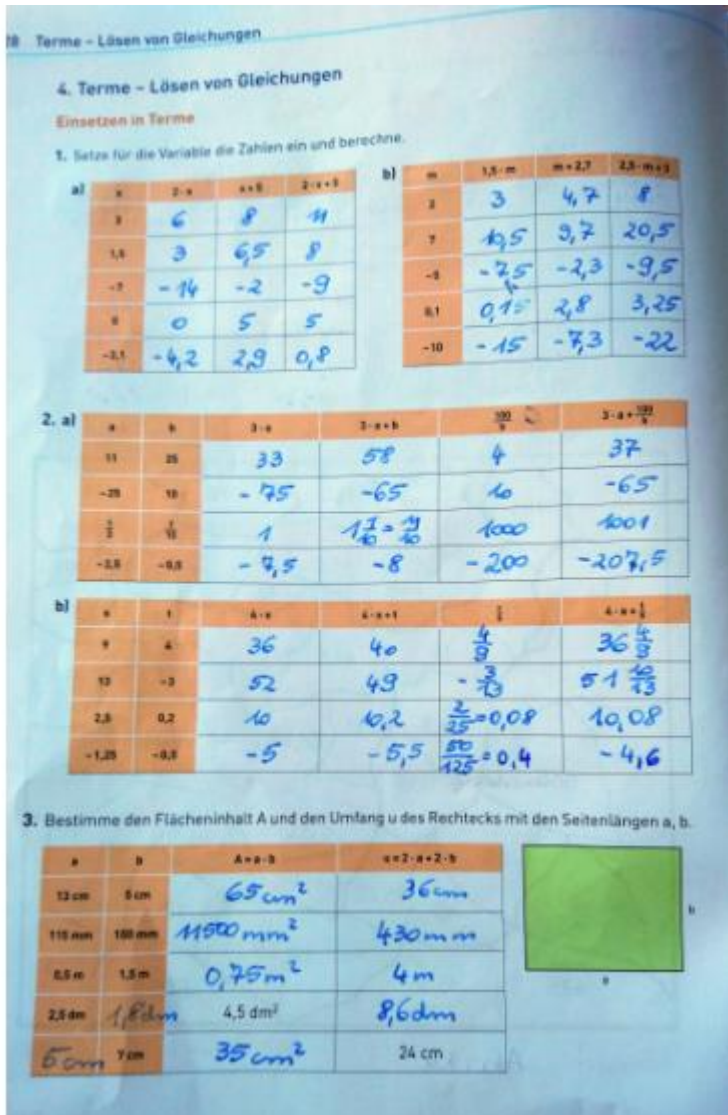 Terme – Lösen von Gleichungen
4. Terme – Lösen von Gleichungen
Einsetzen in Terme
1. Setze für die Variable die Zahlen ein und berechne.
a)
x 2·x x+5 2·x+5
3 6 8 11
1,5 3 6,5 8
-7 -14 -2 -9
0 0 5 5
-2,1 -4,2 2,9 0,8
b)
m 1,5·m m+2,7 2,5·m+3
2 3 4,7 8
7 10,5 9,7 20,5
-5 -7,5 -2,3 -9,5
0,1 0,15 2,8 3,25
-10 -15 -7,3 -22
2. a)
a b 3·a 3·a+b 100/b 3·a+100/b
11 25 33 58 4 37
-25 10 -75 -65 10 -65
1/3 1/10 1 1 1/10 = 11/10 1000 1001
-2,5 -0,5 -7,5 -8 -200 -207,5
b)
s t 4·s 4·s+t t/s 4·s+t/s
9 4 36 40 4/9 36 4/9
13 -3 52 49 -3/13 51 10/13
2,5 0,2 10 10,2 2/25=0,08 10,08
-1,25 -0,5 -5 -5,5 50/125=0,4 -4,6
3. Bestimme den Flächeninhalt A und den Umfang u des Rechtecks mit den Seitenlängen a, b.
a b A=a·b u=2·a+2·b
13 cm 5 cm 65 cm² 36 cm
115 mm 100 mm 11500 mm² 430 mm
0,5 m 1,5 m 0,75 m² 4 m
2,5 dm 1,8 dm 4,5 dm² 8,6 dm
5 cm 7 cm 35 cm² 24 cm
b
a